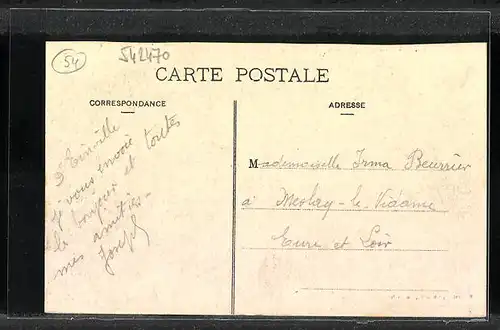 54
542470
CARTE POSTALE
CORRESPONDANCE
ADRESSE
D'Einville
je vous envoie
le bonjour et toutes
mes amitiés
Joseph
Mademoiselle Irma Beurrier
à Meslay-le-Vidame
Eure et Loir